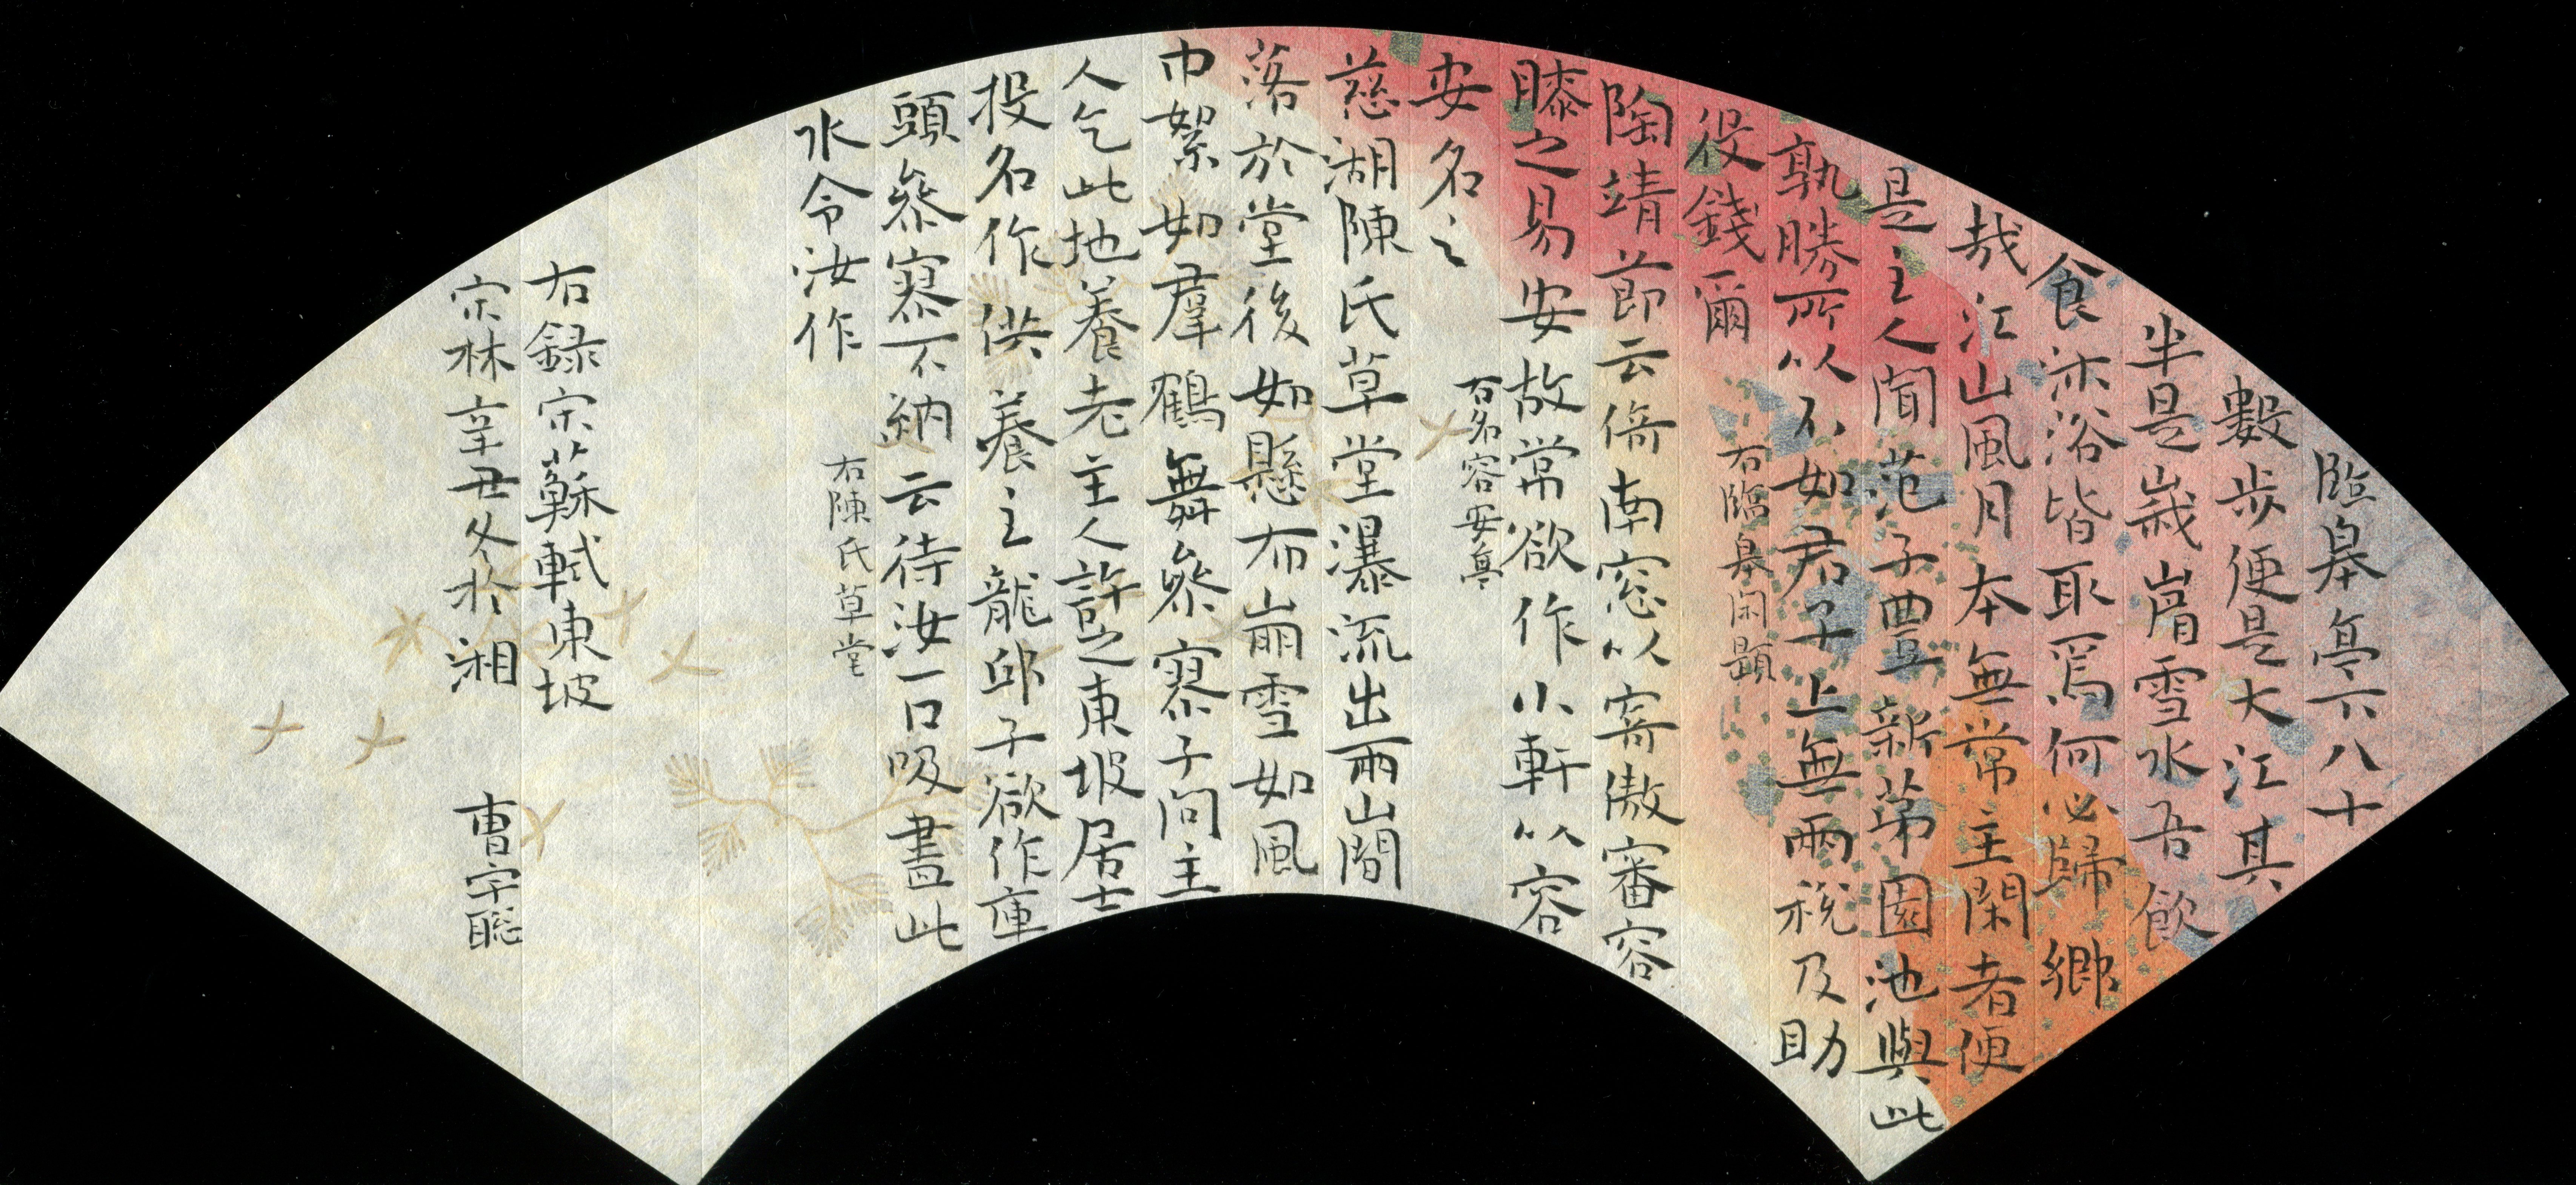 臨皋亭六八十
數步便是大江其
半是峩嵋雪水吾飲
食沐浴皆取焉何必歸鄉
哉江山風月本無常主閑者便
是主人聞范子豐新第園池與此
孰勝所以不如君子上無兩稅及助
役錢爾
右臨皋閑題
陶靖節云倚南窓以寄傲審容
膝之易安故常欲作小軒以容
安名之
右名容安亭
慈湖陳氏草堂瀑流出兩山間
落於堂後如懸布崩雪如風
巾絮如羣鶴舞參寥子問主
人乞此地養老主人許之東坡居士
投名作供養主龍邱子欲作庫
頭參寥不納云待汝一口吸盡此
水令汝作
右陳氏草堂
右録宋蘇軾東坡
宗林辛丑冬於湘
曹宇聰